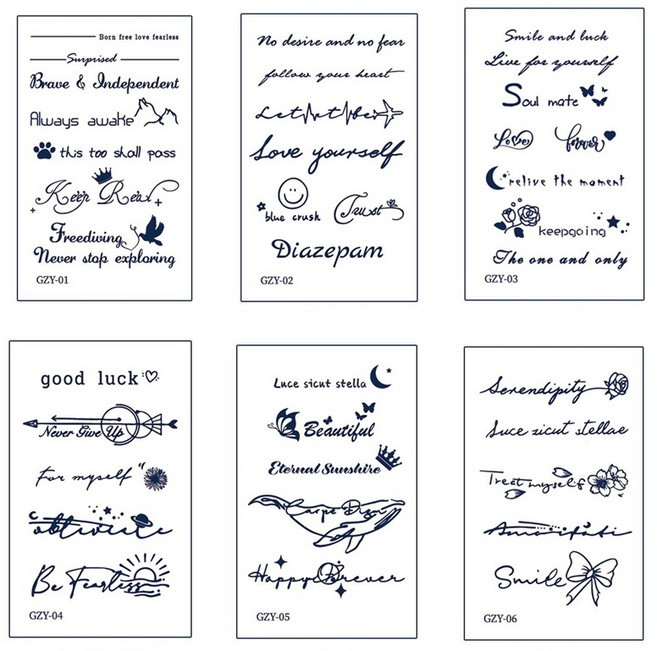 Born free love fearless
Surprised
Brave & Independent
Always awake
this too shall pass
Keep Real
Freediving
Never stop exploring
GZY-01
No desire and no fear
follow your heart
Let it be
Love yourself
blue crush
Trust
Diazepam
GZY-02
Smile and luck
Live for yourself
Soul mate
Love
forever
relive the moment
keepgoing
The one and only
GZY-03
good luck
Never Give Up
For myself
obliviate
Be Fearless
GZY-04
Luce sicut stella
Beautiful
Eternal Sunshire
Carpe Diem
Happy Forever
GZY-05
Serendipity
Luce sicut stellae
Treat myself
Amor fati
Smile
GZY-06